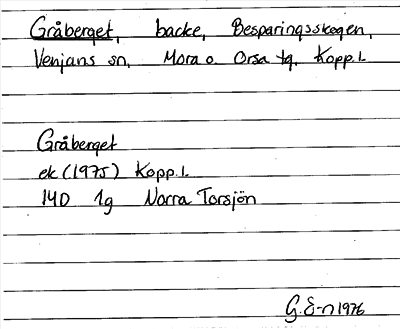 Gråberget, backe, Besparingsskogen,
Venjans sn, Mora o. Orsa tg. Kopp.l.
Gråberget
ek (1975) Kopp.l.
14D 1g Norra Torsjön
G.E-n 1976